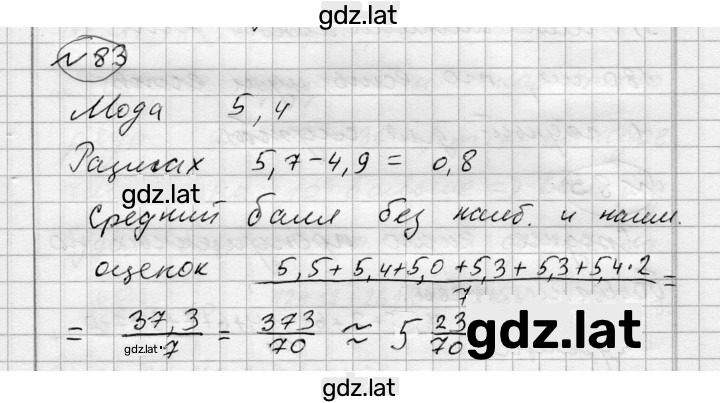 gdz.lat
№ 83
Мода 5,4
Размах 5,7 - 4,9 = 0,8
gdz.lat
Средний балл без наиб. и наим.
оценок (5,5 + 5,4 + 5,0 + 5,3 + 5,3 + 5,4 · 2)/7 =
= 37,3/7 = 373/70 ≈ 5 23/70
gdz.lat
gdz.lat
gdz.lat